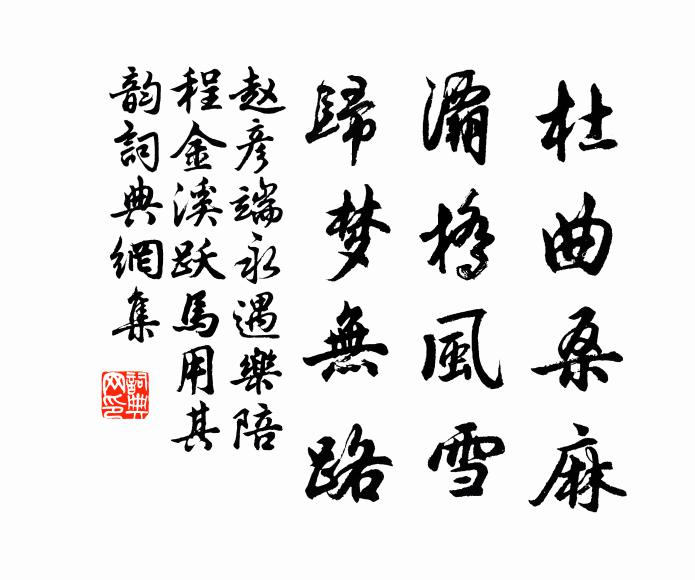 杜曲桑麻
灞橋風雪
歸梦無路
赵彦端永遇樂陪
程金溪跃馬用其
韵詞典網集
詞典
网印